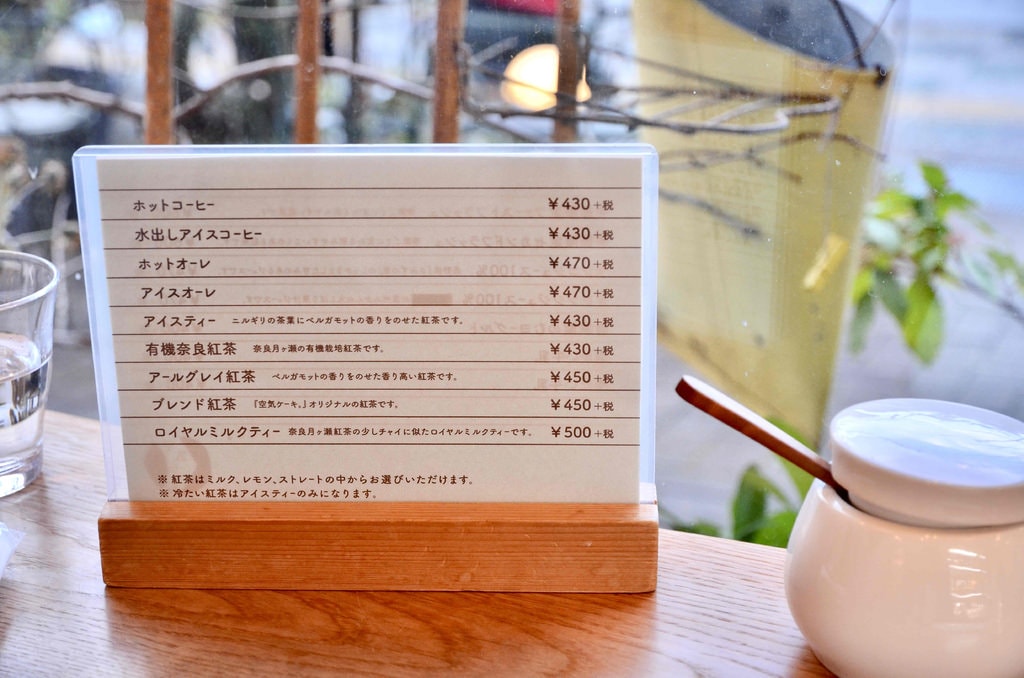 ホットコーヒー ¥430+税
水出しアイスコーヒー ¥430+税
ホットオーレ ¥470+税
アイスオーレ ¥470+税
アイスティー ニルギリの茶葉にベルガモットの香りをのせた紅茶です。 ¥430+税
有機奈良紅茶 奈良月ヶ瀬の有機栽培紅茶です。 ¥430+税
アールグレイ紅茶 ベルガモットの香りをのせた香り高い紅茶です。 ¥450+税
ブレンド紅茶 『空気ケーキ。』オリジナルの紅茶です。 ¥450+税
ロイヤルミルクティー 奈良月ヶ瀬紅茶の少しチャイに似たロイヤルミルクティーです。 ¥500+税
※紅茶はミルク、レモン、ストレートの中からお選びいただけます。
※冷たい紅茶はアイスティーのみになります。